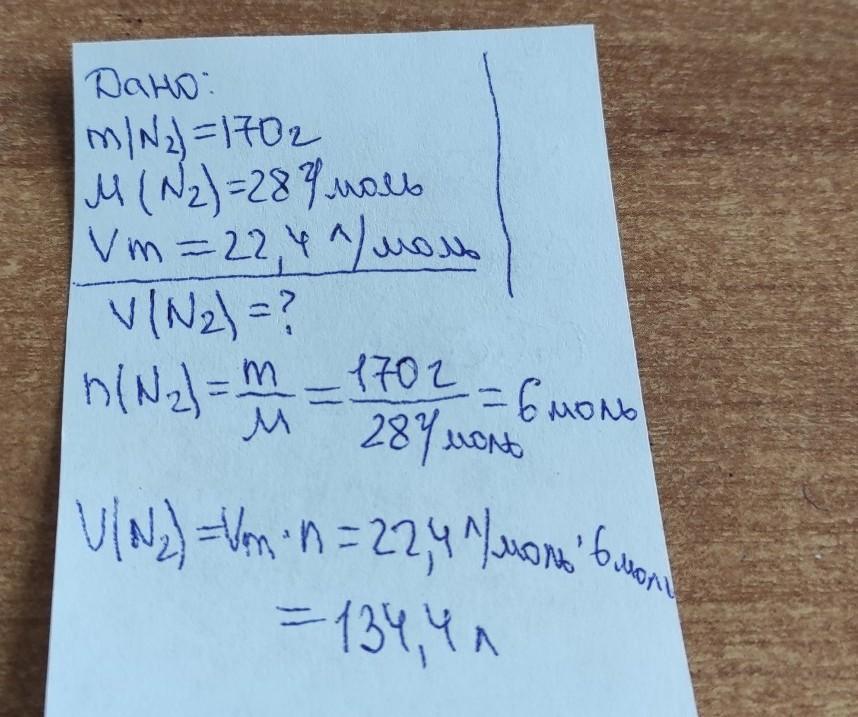 Дано:
m(N2)=170г
M(N2)=28г/моль
Vm=22,4 л/моль
V(N2)=?
n(N2)=m/M=170г/28г/моль=6 моль
V(N2)=Vm·n=22,4 л/моль·6моль
=134,4 л